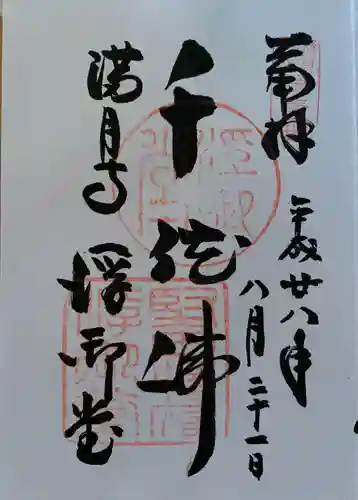 奉拝
平成廿八年
八月二十一日
千体佛
満月寺
浮御堂